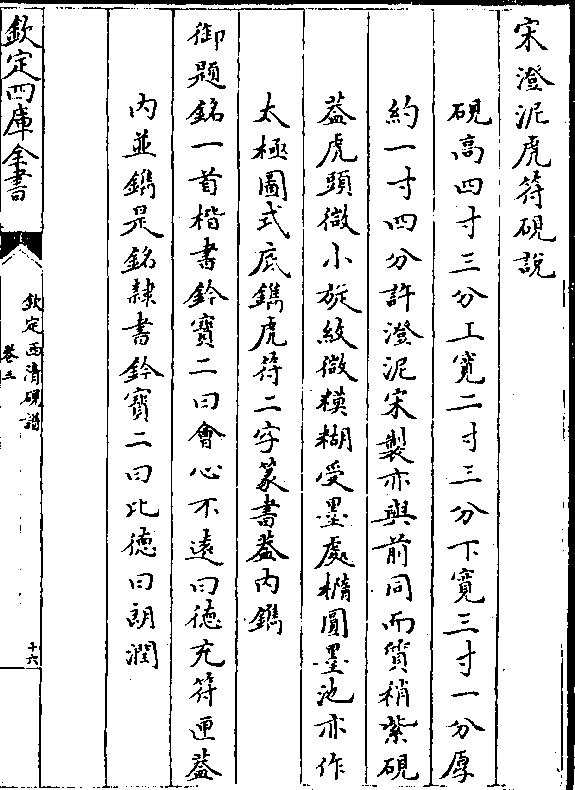 宋澄泥虎符硯說
硯高四寸三分上寬二寸三分下寬三寸一分厚
約一寸四分許澄泥宋製亦與前同而質稍紫硯
葢虎頭微小旋紋微糢糊受墨處橢圓墨池亦作
太極圖式底鐫虎符二字篆書葢内鐫
御題銘一首楷書鈐寶二曰會心不遠曰德充符匣葢
内並鐫是銘隸書鈐寶二曰比德曰朗潤
欽定四庫全書
欽定西清硯譜
卷三
十六